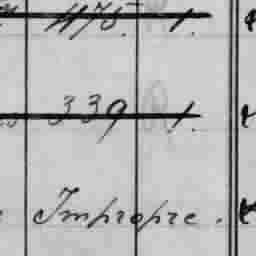 1175. 1.
339 1.
Impropre.